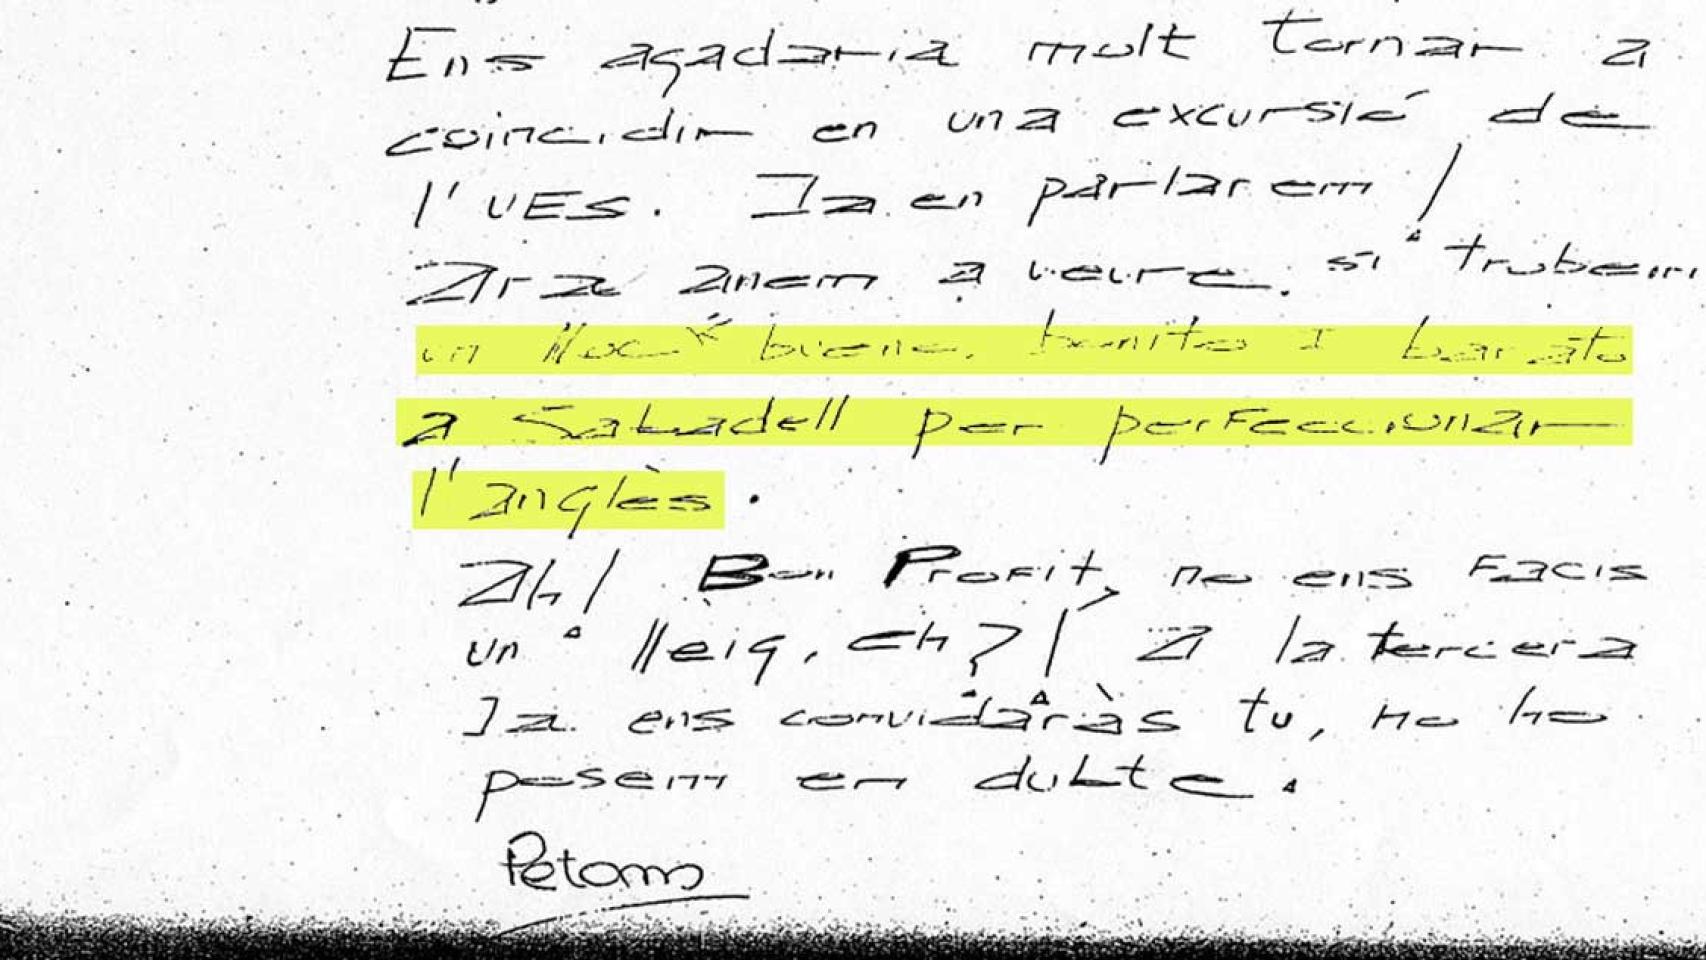 Ens agadaria molt tornar a
coincidir en una excursió de
l'UES. Ja en parlarem!
Ara anem a veure si trobem
un lloc bueno, bonito i barato
a Sabadell per perfeccionar
l'anglès.
Ah! Bon Profit, no ens facis
un lleig, eh?! A la tercera
ja ens convidaràs tu, no ho
posem en dubte.
Petons